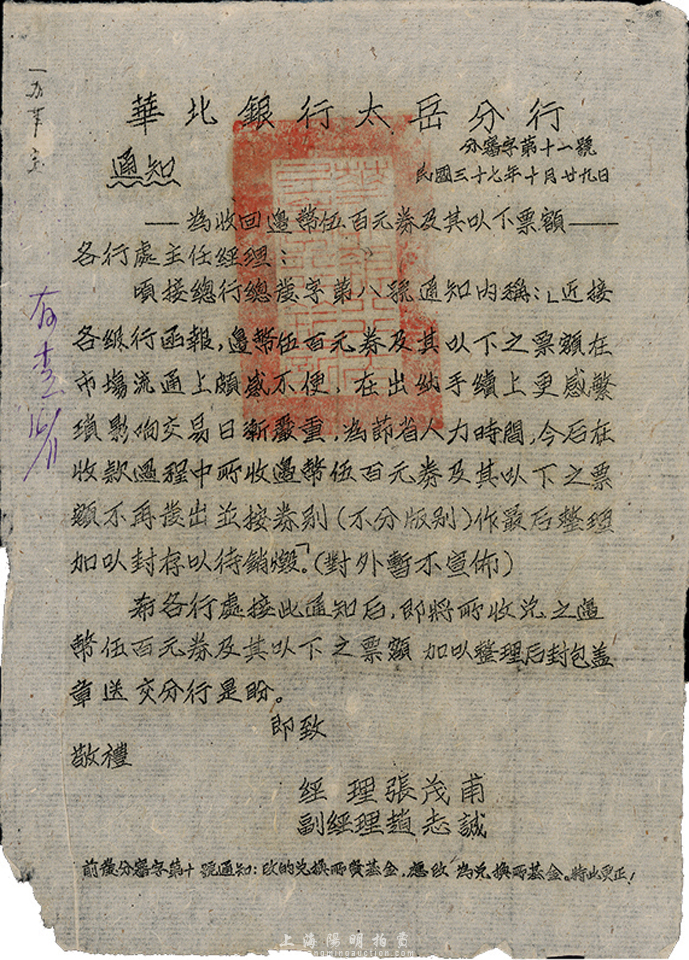 華北銀行太岳分行
分審字第十一號
通知
民國三十七年十月廿九日
——為收回邊幣伍百元券及其以下票額——
各行處主任經理：
頃接總行總發字第八號通知內稱：「近接
各級行函報，邊幣伍百元券及其以下之票額在
市場流通上頗感不便，在出納手續上更感繁
瑣影响交易日漸嚴重，為節省人力時間，今后在
收款過程中所收邊幣伍百元券及其以下之票
額不再發出並按券別（不分版別）作最后整理
加以封存以待銷燬」。（對外暫不宣佈）
希各行處接此通知后，即將所收兌之邊
幣伍百元券及其以下之票額加以整理后封包盖
章送交分行是盼。
即致
敬禮
經理張茂甫
副經理趙志誠
前發分審字第十號通知：改的兌換所貸基金，應改為兌換所基金。特此更正！
上海陽明拍賣